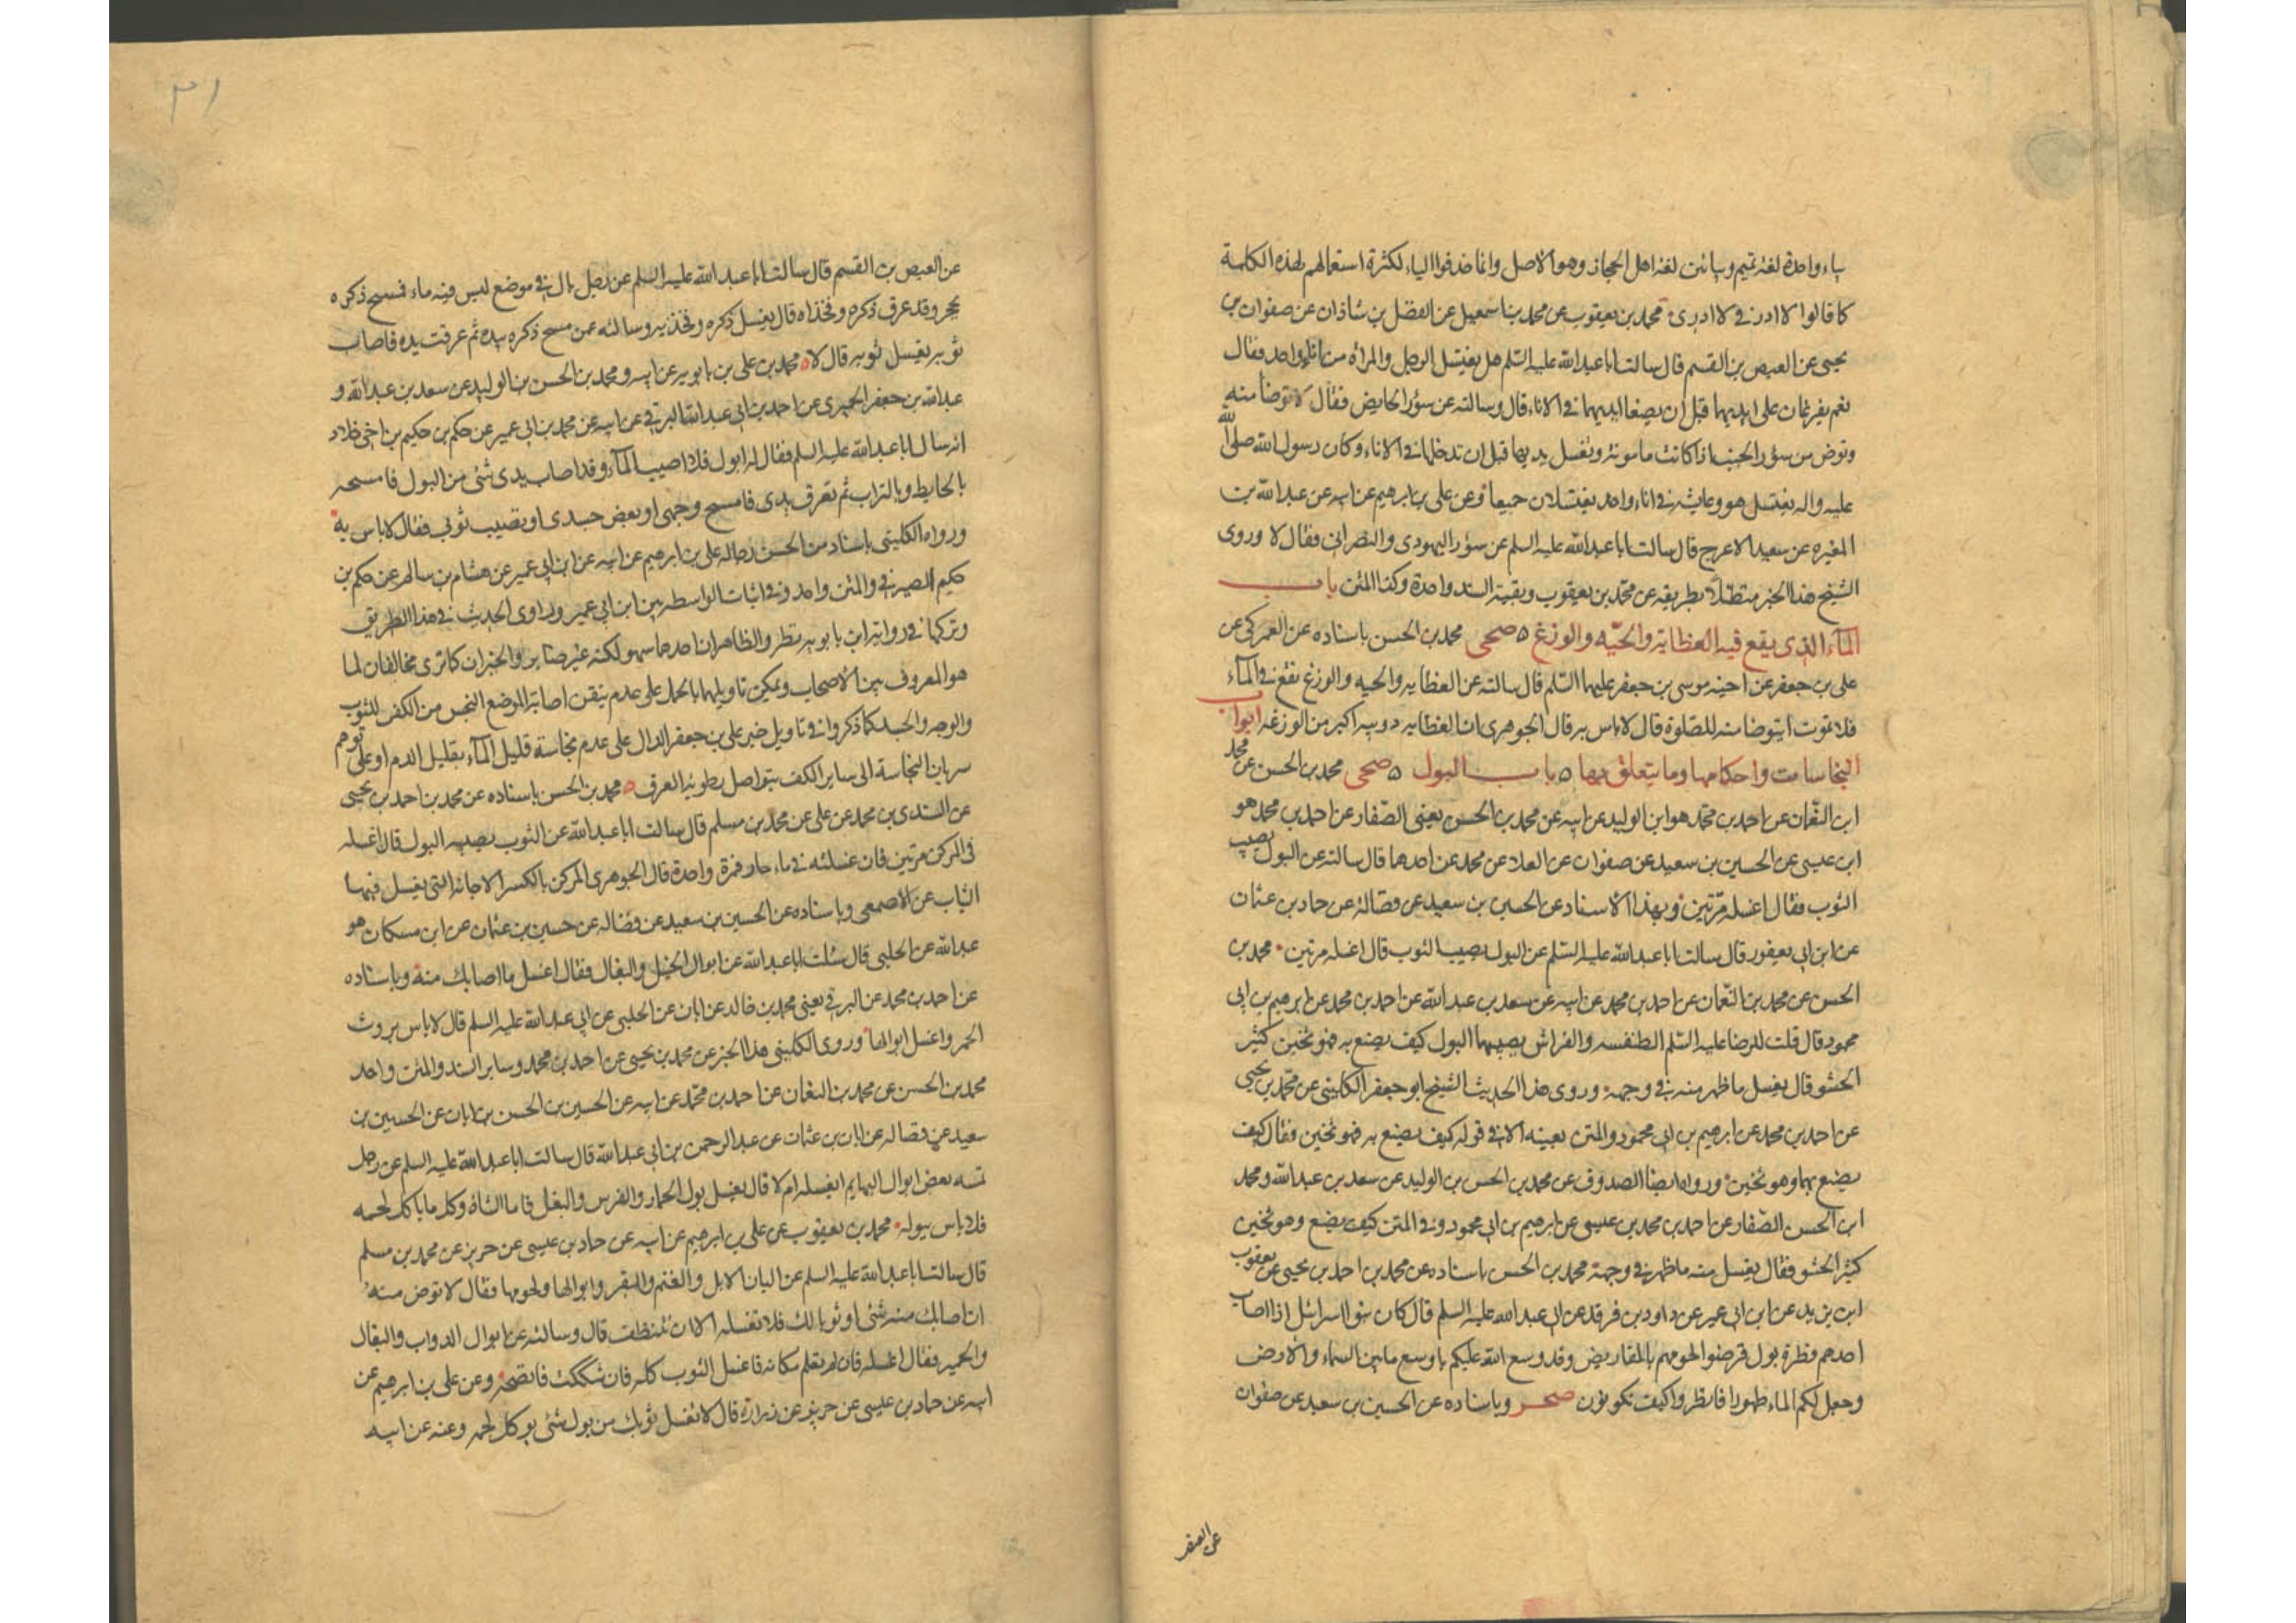 بياء واحدة لغة تميم وبيائين لغة اهل الحجاز وهو الاصل وانما حذفوا الياء لكثرة استعمالهم لهذه الكلمة
كما قالوا لا ادر في لا ادرى محمد بن يعقوب عن محمد بن اسمعيل عن الفضل بن شاذان عن صفوان بن
يحيى عن العيص بن القسم قال سالت ابا عبد الله عليه السلم هل يغتسل الرجل والمراة من اناء واحد فقال
نعم يفرغان على ايديهما قبل ان يضعا ايديهما في الاناء قال وسالته عن سؤر الحايض فقال لا توضأ منه
وتوض من سؤر الجنب اذا كانت مامونة وتغسل يديها قبل ان تدخلها في الاناء وكان رسول الله صلى الله
عليه واله يغتسل هو وعايشة في اناء واحد يغتسلان جميعا وعن علي بن ابرهيم عن ابيه عن عبد الله بن
المغيره عن سعيد الاعرج قال سالت ابا عبد الله عليه السلم عن سؤر اليهودى والنصرانى فقال لا وروى
الشيخ هذا الخبر متصلا بطريقه عن محمد بن يعقوب وبقية السند واحدة وكذا المتن باب
الماء الذى يقع فيه العظاية والحيه والوزغ ٥ صحى محمد بن الحسن باسناده عن العمركى عن
على بن جعفر عن اخيه موسى بن جعفر عليهما السلم قال سالته عن العظايه والحيه والوزغ تقع في الماء
فلا تموت ايتوضا منه للصلوة قال لا باس به قال الجوهرى ان العظايه دويبه اكبر من الوزغه ابواب
النجاسات واحكامها وما يتعلق بها ٥ باب البول ٥ صحى محمد بن الحسن عن محمد
ابن النعمان عن احمد بن محمد هو ابن الوليد عن ابيه عن محمد بن الحسن يعنى الصفار عن احمد بن محمد هو
ابن عيسى عن الحسين بن سعيد عن صفوان عن العلا عن محمد عن احدهما قال سالته عن البول يصيب
الثوب فقال اغسله مرتين وبهذا الاسناد عن الحسين بن سعيد عن فضالة عن حماد بن عثمان
عن ابن ابى يعفور قال سالت ابا عبد الله عليه السلم عن البول يصيب الثوب قال اغسله مرتين محمد بن
الحسن عن محمد بن النعمان عن احمد بن محمد عن ابيه عن سعد بن عبد الله عن احمد بن محمد عن ابرهيم بن ابى
محمود قال قلت للرضا عليه السلم الطنفسه والفراش يصيبهما البول كيف يصنع به فهو ثخين كثير
الحشو قال يغسل ما ظهر منه في وجهه وروى هذا الحديث الشيخ ابو جعفر الكلينى عن محمد بن يحيى
عن احمد بن محمد عن ابرهيم بن ابى محمود والمتن بعينه الا في قوله كيف يصنع به فهو ثخين فقال كيف
يصنع بهما وهو ثخين ورواه ايضا الصدوق عن محمد بن الحسن بن الوليد عن سعد بن عبد الله ومحمد
ابن الحسن الصفار عن احمد بن محمد بن عيسى عن ابرهيم بن ابى محمود وفي المتن كيف يصنع وهو ثخين
كثير الحشو فقال يغسل منه ما ظهر في وجهه محمد بن الحسن باسناده عن محمد بن احمد بن يحيى عن يعقوب
ابن يزيد عن ابن ابى عمير عن داود بن فرقد عن ابى عبد الله عليه السلم قال كان بنو اسرائيل اذا اصاب
احدهم قطرة بول قرضوا لحومهم بالمقاريض وقد وسع الله عليكم باوسع ما بين السماء والارض
وجعل لكم الماء طهورا فانظروا كيف تكونون صحر وباسناده عن الحسين بن سعيد عن صفوان
عن العيص
٣١
عن العيص بن القسم قال سالت ابا عبد الله عليه السلم عن رجل بال في موضع ليس فيه ماء فمسح ذكره
بحجر وقد عرق ذكره وفخذاه قال يغسل ذكره وفخذيه وسالته عمن مسح ذكره بيده ثم عرقت يده فاصاب
ثوبه يغسل ثوبه قال لا ٥ محمد بن على بن بابويه عن ابيه ومحمد بن الحسن بن الوليد عن سعد بن عبد الله و
عبد الله بن جعفر الحميرى عن احمد بن ابى عبد الله البرقى عن ابيه عن محمد بن ابى عمير عن حكم بن حكيم بن اخى خلاد
انه سال ابا عبد الله عليه السلم فقال له ابول فلا اصيب الماء وقد اصاب يدى شئ من البول فامسحه
بالحايط وبالتراب ثم تعرق يدى فامسح وجهى او بعض جسدى او تصيب ثوبى فقال لا باس به
ورواه الكلينى باسناد من الحسن رجاله على بن ابرهيم عن ابيه عن ابن ابى عمير عن هشام بن سالم عن حكم بن
حكيم الصيرفى والمتن واحد وفي اثبات الواسطه بين ابن ابى عمير وراوى الحديث في هذا الطريق
وتركها في رواية ابن بابويه نظر والظاهر ان احدهما سهو لكنه غير ضاير والخبران كما ترى مخالفان لما
هو المعروف بين الاصحاب ويمكن تاويلهما بالحمل على عدم تيقن اصابة الموضع النجس من الكف للثوب
والوجه والجسد كما ذكروا في تاويل خبر على بن جعفر الدال على عدم نجاسة قليل الماء بقليل الدم او على توهم
سريان النجاسة الى ساير الكف بتواصل رطوبة العرق ٥ محمد بن الحسن باسناده عن محمد بن احمد بن يحيى
عن السندى بن محمد عن على عن محمد بن مسلم قال سالت ابا عبد الله عن الثوب يصيبه البول قال اغسله
في المركن مرتين فان غسلته في ماء جار فمرة واحدة قال الجوهرى المركن بالكسر الاجانه التى يغسل فيها
الثياب عن الاصمعى وباسناده عن الحسين بن سعيد عن فضاله عن حسين بن عثمان عن ابن مسكان هو
عبد الله عن الحلبى قال سئلت ابا عبد الله عن ابوال الخيل والبغال فقال اغسل ما اصابك منه وباسناده
عن احمد بن محمد عن البرقى يعنى محمد بن خالد عن ابان عن الحلبى عن ابى عبد الله عليه السلم قال لا باس بروث
الحمر واغسل ابوالها وروى الكلينى هذا الخبر عن محمد بن يحيى عن احمد بن محمد وساير السند والمتن واحد
محمد بن الحسن عن محمد بن النعمان عن احمد بن محمد عن ابيه عن الحسين بن الحسن بن ابان عن الحسين بن
سعيد عن فضاله عن ابان بن عثمان عن عبد الرحمن بن ابى عبد الله قال سالت ابا عبد الله عليه السلم عن رجل
تمسه بعض ابوال البهايم ايغسله ام لا قال يغسل بول الحمار والفرس والبغل فاما الشاة وكل ما ياكل لحمه
فلا باس ببوله محمد بن يعقوب عن على بن ابرهيم عن ابيه عن حماد بن عيسى عن حريز عن محمد بن مسلم
قال سالت ابا عبد الله عليه السلم عن البان الابل والغنم والبقر وابوالها ولحومها فقال لا توض منه
ان اصابك منه شئ او ثوبا لك فلا تغسله الا ان تتنظف قال وسالته عن ابوال الدواب والبغال
والحمير فقال اغسله فان لم تعلم مكانه فاغسل الثوب كله فان شككت فانضحه وعن على بن ابرهيم عن
ابيه عن حماد بن عيسى عن حريز عن زرارة قال لا تغسل ثوبك من بول شئ يوكل لحمه وعنه عن ابيه